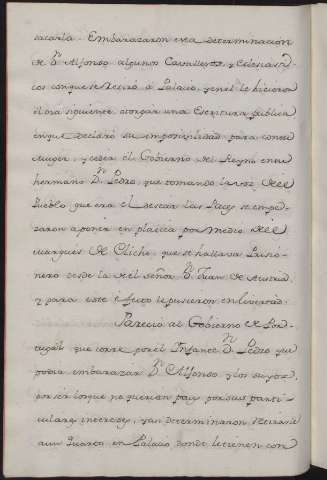 sacarla. Embarazaron esta determinacion
de Dn Alfonso algunos Cavalleros, y Eclesiasti-
cos con que se retiró à Palacio, y en el le hicieron
el dia siguiente otorgar una Escritura publica
en que declaró su imposibilidad para con su
Muger, y ceder el Gobierno del Reyno en su
hermano Dn Pedro, que tomando la voz del
Pueblo que era el desear las Paces se empe-
zaron a poner en platica por medio del
Marques de Eliche que se hallava Prisio-
nero desde la del señor Dn Juan de Austria,
y para este efecto le pusieron en livertad.
Parecia al Gobierno de Por-
tugal que corre por el Infante Dn Pedro que
podia embarazar Dn Alfonso, y los suyos,
por ser los que no querian paz por sus parti-
culares intereses, y asi determinaron retirarle
a un Quarto en Palacio donde le tienen con